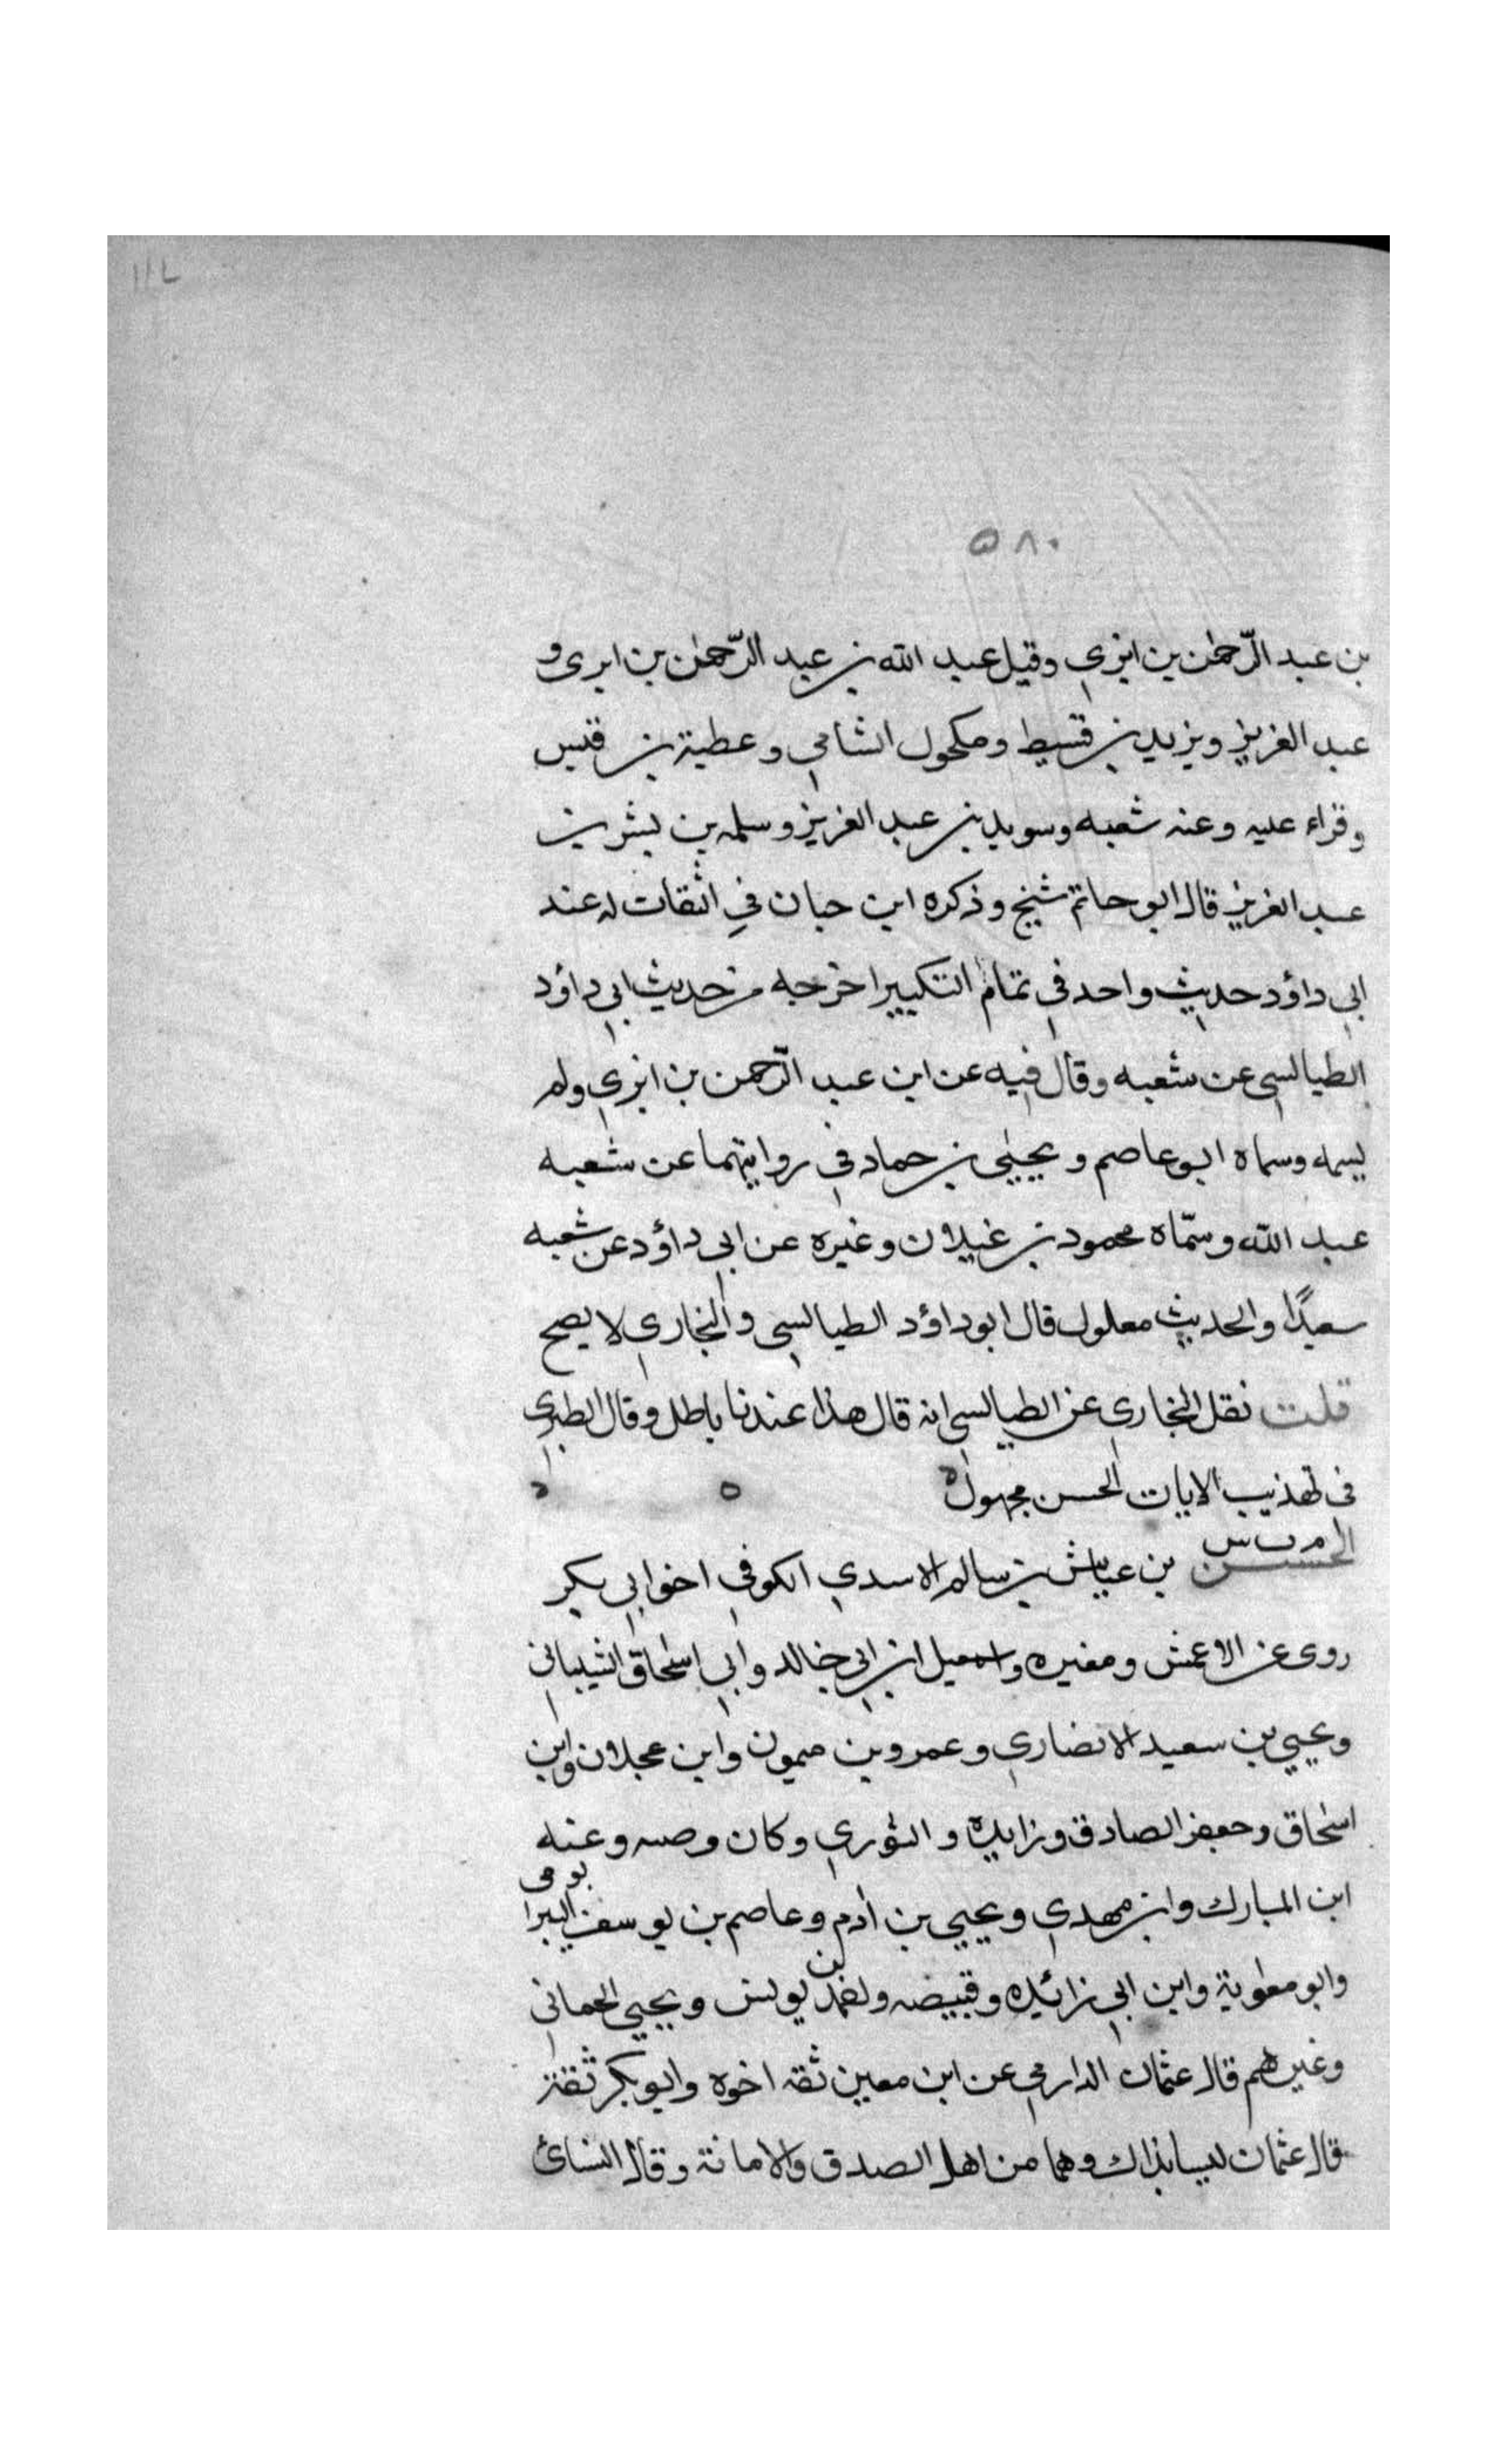 ٥٨٠
بن عبد الرّحمٰن بن ابزي وقيل عبد الله بن عبد الرّحمٰن بن ابزى و
عبد العزيز ويزيد بن قسيط ومكحول الشامي وعطية بن قيس
وقراء عليه وعنه شعبه وسويد بن عبد العزيز وسلمه بن بشر بن
عبد العزيز قال ابو حاتم شيخ وذكره ابن حبان في الثقات له عند
ابي داؤد حديث واحد في تمام التكبير اخرجه من حديث ابي داؤد
الطيالسي عن شعبه وقال فيه عن ابن عبد الرّحمن بن ابزي ولم
يسمه وسماه ابو عاصم ويحيٰى بن حماد في روايتهما عن شعبه
عبد الله وسمّاه محمود بن غيلان وغيره عن ابي داؤد عن شعبه
سعيدًا والحديث معلول قال ابو داؤد الطيالسي والبخاري لا يصح
قلت نقل البخاري عن الطيالسي انه قال هذا عندنا باطل وقال الطبري
في تهذيب الاثار الحسن مجهول ه
م ت س
الحسن بن عياش بن سالم الاسدي الكوفي اخو ابي بكر
روى عن الاعمش ومغيره واسمعيل ابن ابي خالد وابي اسحاق الشيباني
ويحيي بن سعيد الانصاري وعمرو بن ميمون وابن عجلان وابن
اسحاق وجعفر الصادق وزايدة والثوري وكان وصيه وعنه
ابن المبارك وابن مهدي ويحيي بن أدم وعاصم بن يوسف اليربوعي
وابو معٰوية وابن ابي زائيده وقبيصه واحمد بن يونس ويحيي الحماني
وغيرهم قال عثمان الدارمي عن ابن معين ثقه اخوه وابو بكر ثقة
قال عثمان ليسا بذاك وهما من اهل الصدق والامانة وقال النسائ